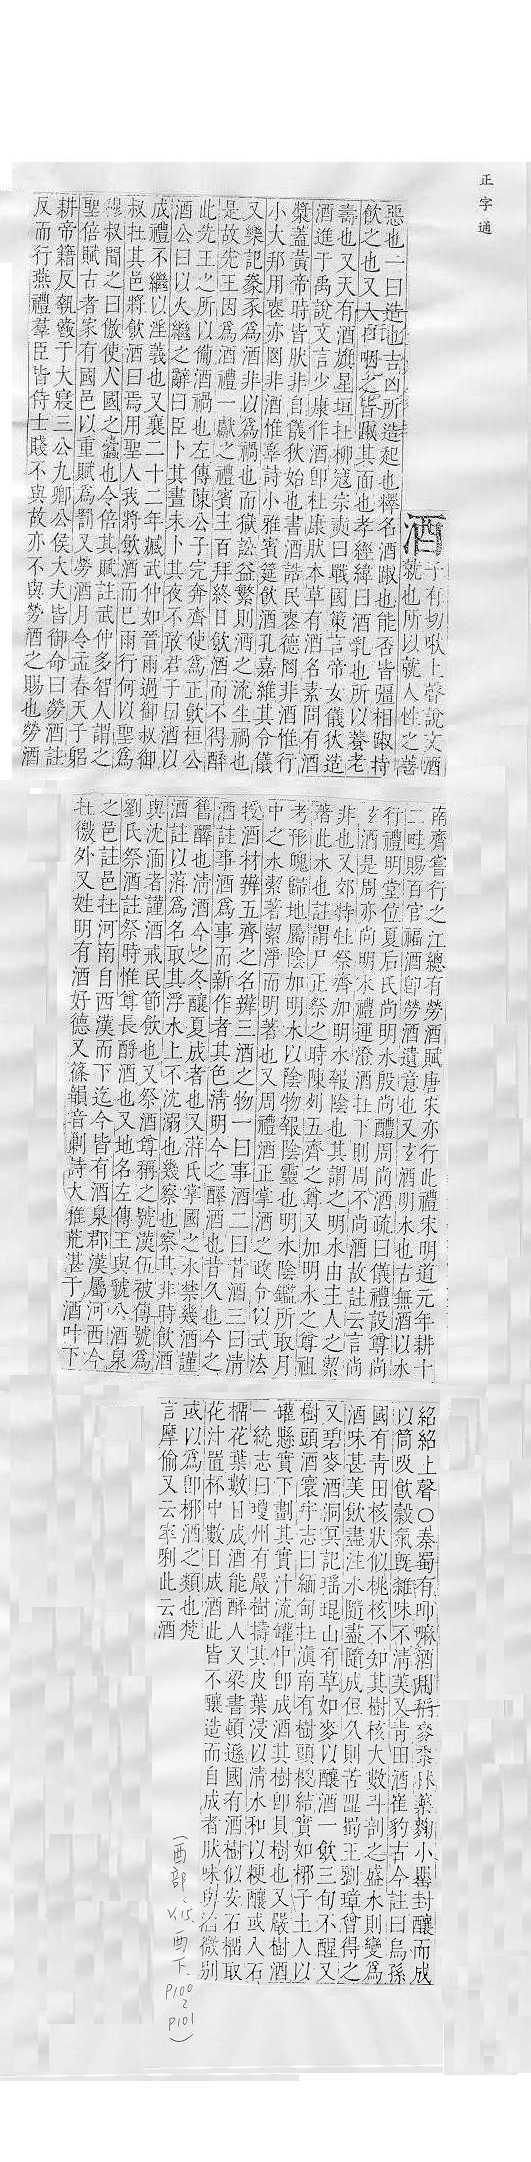 正字通
酒
子有切啾上聲說文酒
就也所以就人性之善
惡也一曰造也吉凶所造起也釋名酒踧也能否皆彊相踧持
飲之也又入口咽之皆踧其面也孝經緯曰酒乳也所以養老
壽也又天有酒旗星垣在柳宼宗奭曰戰國策言帝女儀狄造
酒進于禹說文言少康作酒卽杜康肰本草有酒名素問有酒
漿蓋黃帝時皆肰非自儀狄始也書酒誥民喪德罔非酒惟行
小大邦用喪亦罔非酒惟辜詩小雅賓筵飲酒孔嘉維其令儀
又樂記豢豕為酒非以為禍也而獄訟益繁則酒之流生禍也
是故先王因為酒禮一獻之禮賓主百拜終日飲酒而不得醉
此先王之所以備酒禍也左傳陳公子完奔齊使為工正飲桓公
酒公曰以火繼之辭曰臣卜其晝未卜其夜不敢君子曰酒以
成禮不繼以淫義也又襄二十二年臧武仲如晉雨過御叔御
叔在其邑將飲酒曰焉用聖人我將飲酒而已雨行何以聖為
穆叔聞之曰傲使人國之蠹也令倍其賦註武仲多智人謂之
聖倍賦古者家有國邑以重賦為罰又勞酒月令孟春天子躬
耕帝籍反執爵于大寢三公九卿公侯大夫皆御命曰勞酒註
反而行燕禮羣臣皆侍士賤不與故亦不與勞酒之賜也勞酒
南齊嘗行之江總有勞酒賦唐宋亦行此禮宋明道元年耕十
二畦賜百官福酒卽勞酒遺意也又玄酒明水也古無酒以水
行禮明堂位夏后氏尚明水殷尚醴周尚酒疏曰儀禮設尊尚
玄酒是周亦尚明水禮運澄酒在下則周不尚酒故註云言尚
非也又郊特牲祭齊加明水報陰也其謂之明水由主人之絜
著此水也註謂尸正祭之時陳列五齊之尊又加明水之尊祖
考形魄歸地屬陰加明水以陰物報陰靈也明水陰鑑所取月
中之水絜著潔淨而明著也又周禮酒正掌酒之政令以式法
授酒材辨五齊之名辨三酒之物一曰事酒二曰昔酒三曰淸
酒註事酒為事而新作者其色淸明今之醳酒也昔久也今之
舊醳也淸酒今之冬釀夏成者也又萍氏掌國之水禁幾酒謹
酒註以萍為名取其浮水上不沈溺也幾察也察其非時飲酒
與沈湎者謹酒戒民節飲也又祭酒尊稱之號漢伍被傳號為
劉氏祭酒註祭時惟尊長酹酒也又地名左傳王與虢公酒泉
之邑註邑在河南自西漢而下迄今皆有酒泉郡漢屬河西今
在徼外又姓明有酒好德又篠韻音剿詩大雅荒湛于酒叶下
紹紹上聲○秦蜀有咂嘛酒稠稱麥黍秫藥麴小罌封釀而成
以筒吸飲穀氣旣雜味不淸美又靑田酒崔豹古今註曰烏孫
國有靑田核狀似桃核不知其樹核大數斗剖之盛水則變為
酒味甚美飲盡注水隨盡隨成但久則苦澀蜀王劉璋曾得之
又碧麥酒洞冥記瑤琨山有草如麥以釀酒一飲三旬不醒又
樹頭酒寰宇志曰緬甸在滇南有樹頭椶結實如椰子土人以
罐懸實下劃其實汁流罐中卽成酒其樹卽貝樹也又嚴樹酒
一統志曰瓊州有嚴樹擣其皮葉浸以淸水和以粳釀或入石
榴花葉數日成酒能醉人又梁書頓遜國有酒樹似安石榴取
花汁置杯中數日成酒此皆不釀造而自成者肰味與治微別
或以為卽椰酒之類也梵
言摩偷又云窣唎此云酒
(酉部、V.15、酉下、P100~P101)